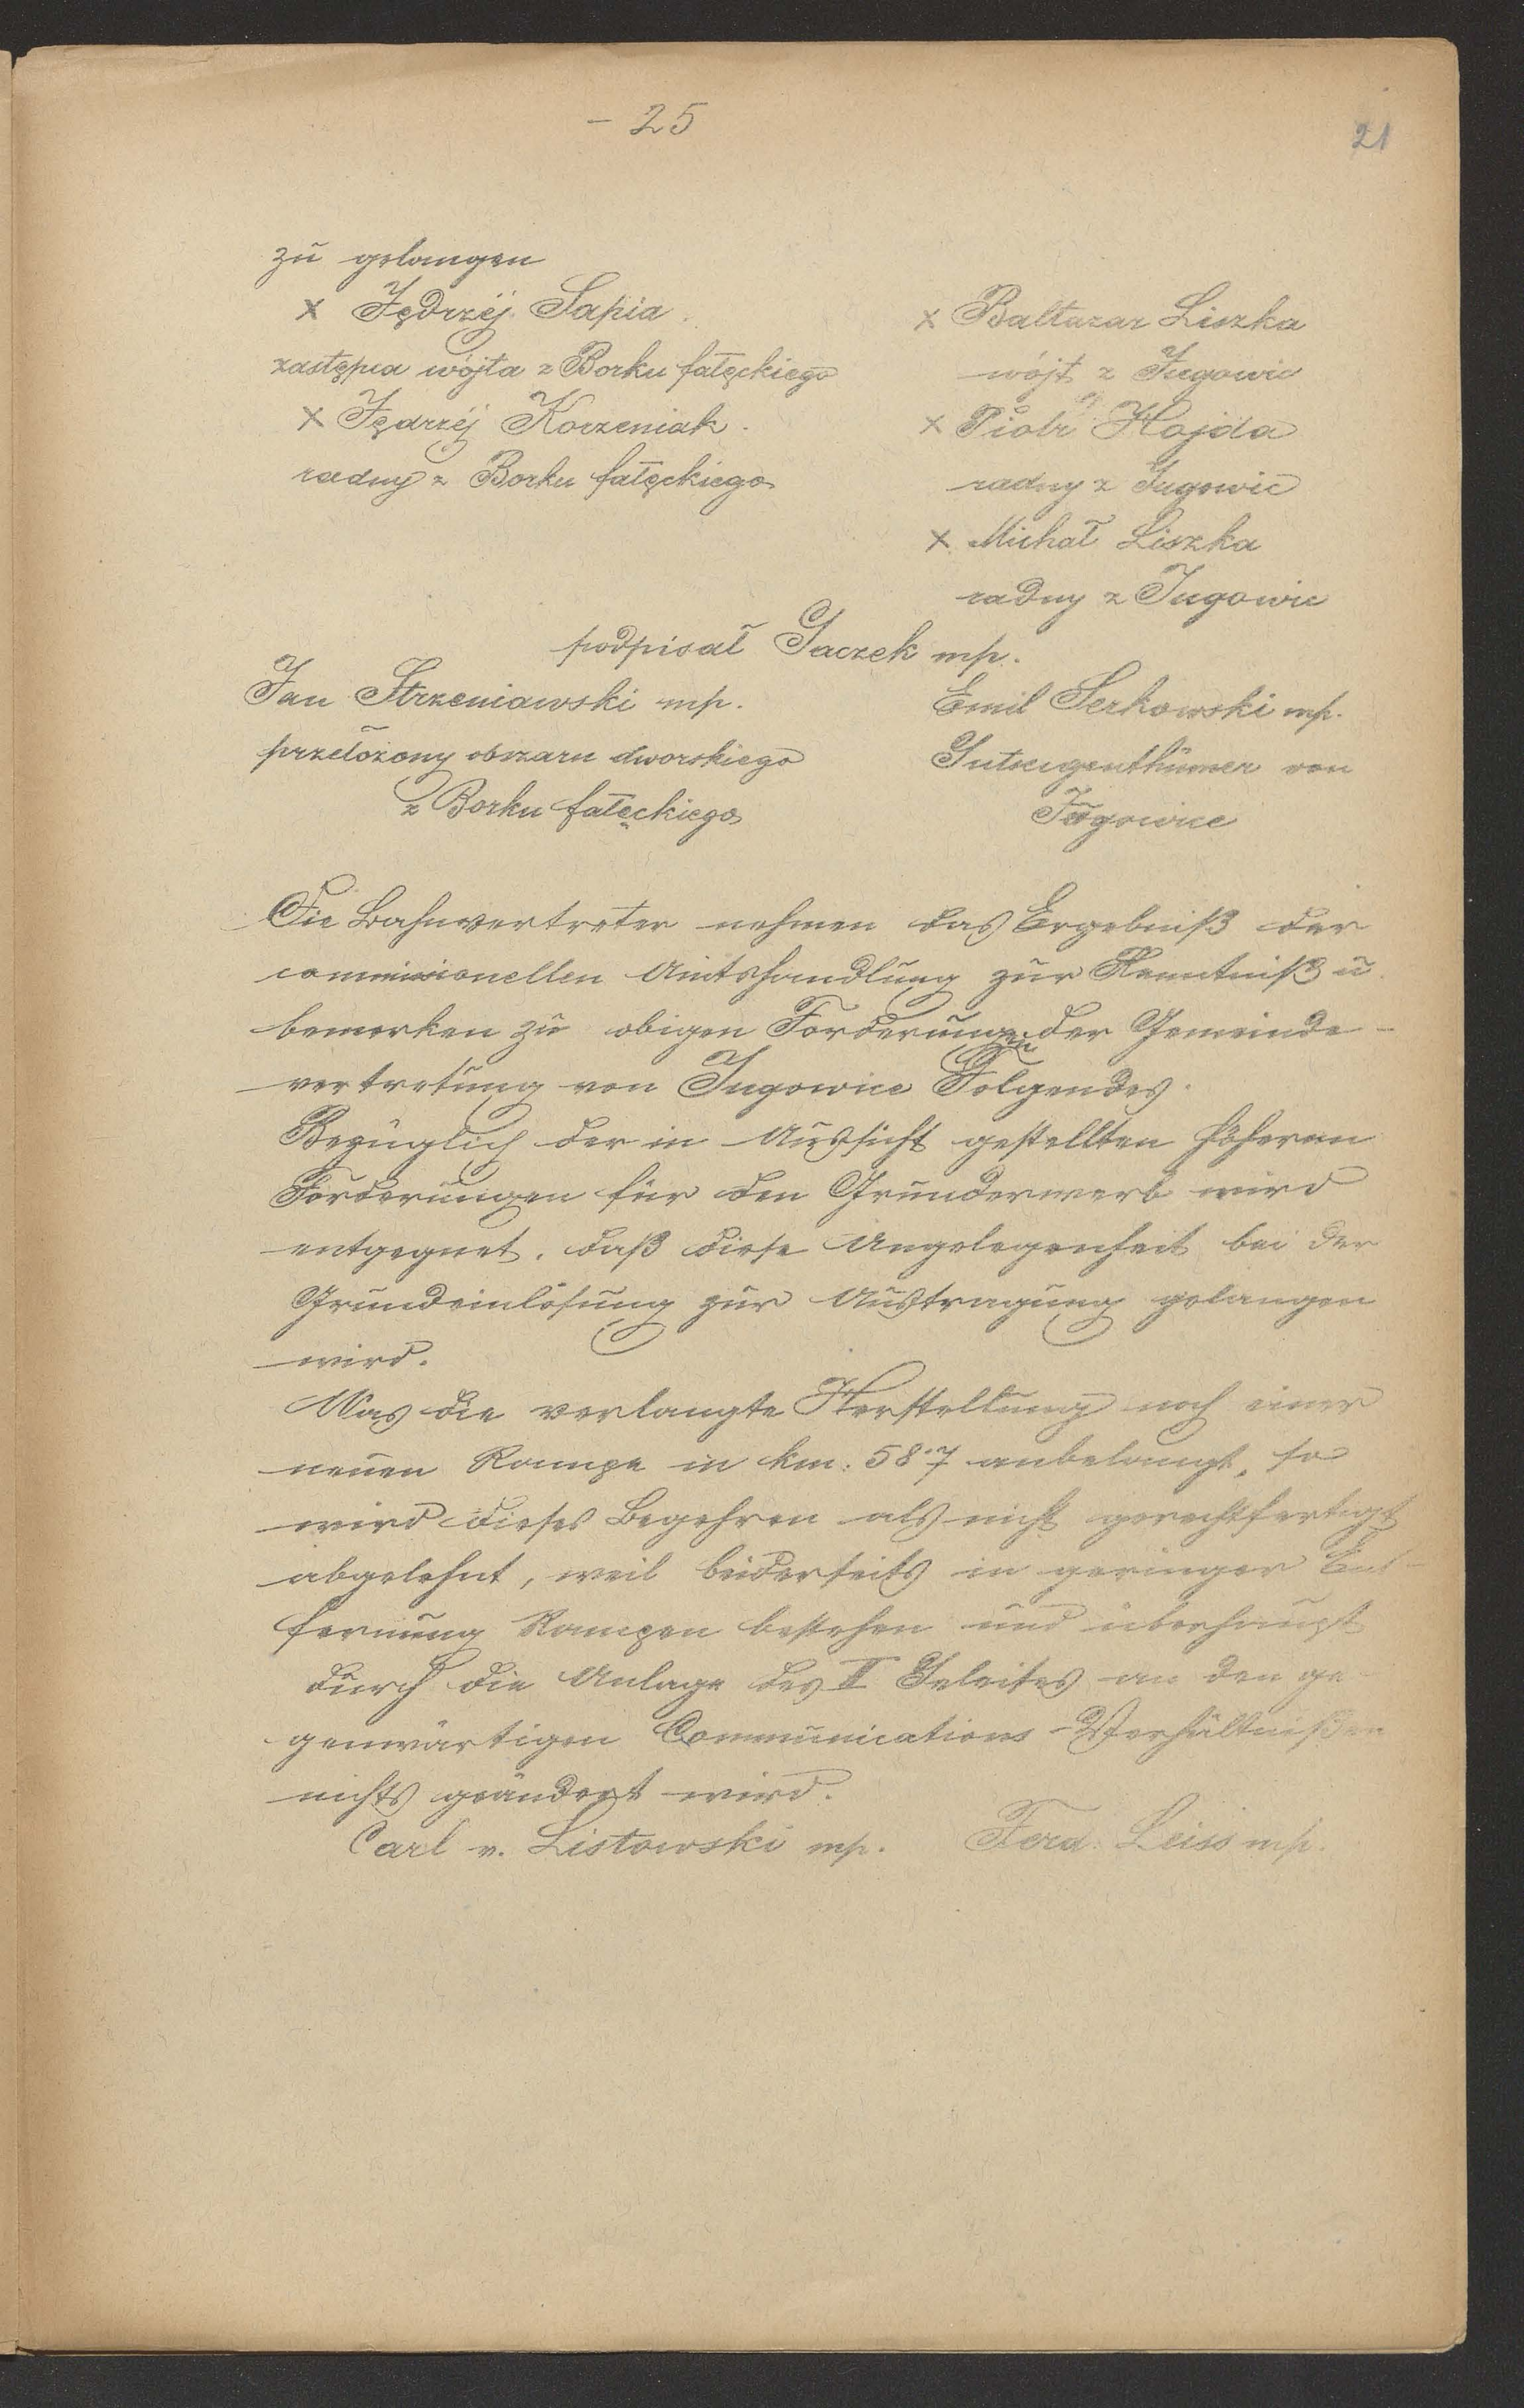 - 25
21
zu gelangen
x Jędrzéj Sapia.
zastępca wójta z Borku fałęckiego
x Jędrzéj Korzeniak.
radny z Borku fałęckiego
x Baltazar Liszka
wójt z Jugowic
x Piotr Hojda
radny z Jugowic
x Michał Liszka
radny z Jugowic
podpisał Gaczek mp.
Jan Strzeniawski mp.
przełożony obszaru dworskiego
z Borku fałęckiego
Emil Serkowski mp.
Gutseigenthümer von
Jugowice
Die Bahnvertreter nehmen das Ergebniß der
commissionellen Amtshandlung zur Kenntniß u
bemerken zu obigen Forderungen der Gemeinde-
vertretung von Jugowice Folgendes.
Bezüglich der in Aussicht gestellten höheren
Forderungen für den Grunderwerb wird
entgegnet, daß diese Angelegenheit bei der
Grundeinlösung zur Austragung gelangen
wird.
Was die verlangte Herstellung noch einer
neuen Rampe in km: 58·7 anbelangt, so
wird dieses Begehren als nicht gerechtfertigt
abgelehnt, weil beiderseits in geringer Ent-
fernung Rampen bestehen und überhaupt
durch die Anlage des II Geleises an den ge-
genwärtigen Communications-Verhältnißen
nichts geändert wird.
Carl v. Listowski mp. Ferd: Leiss mp.